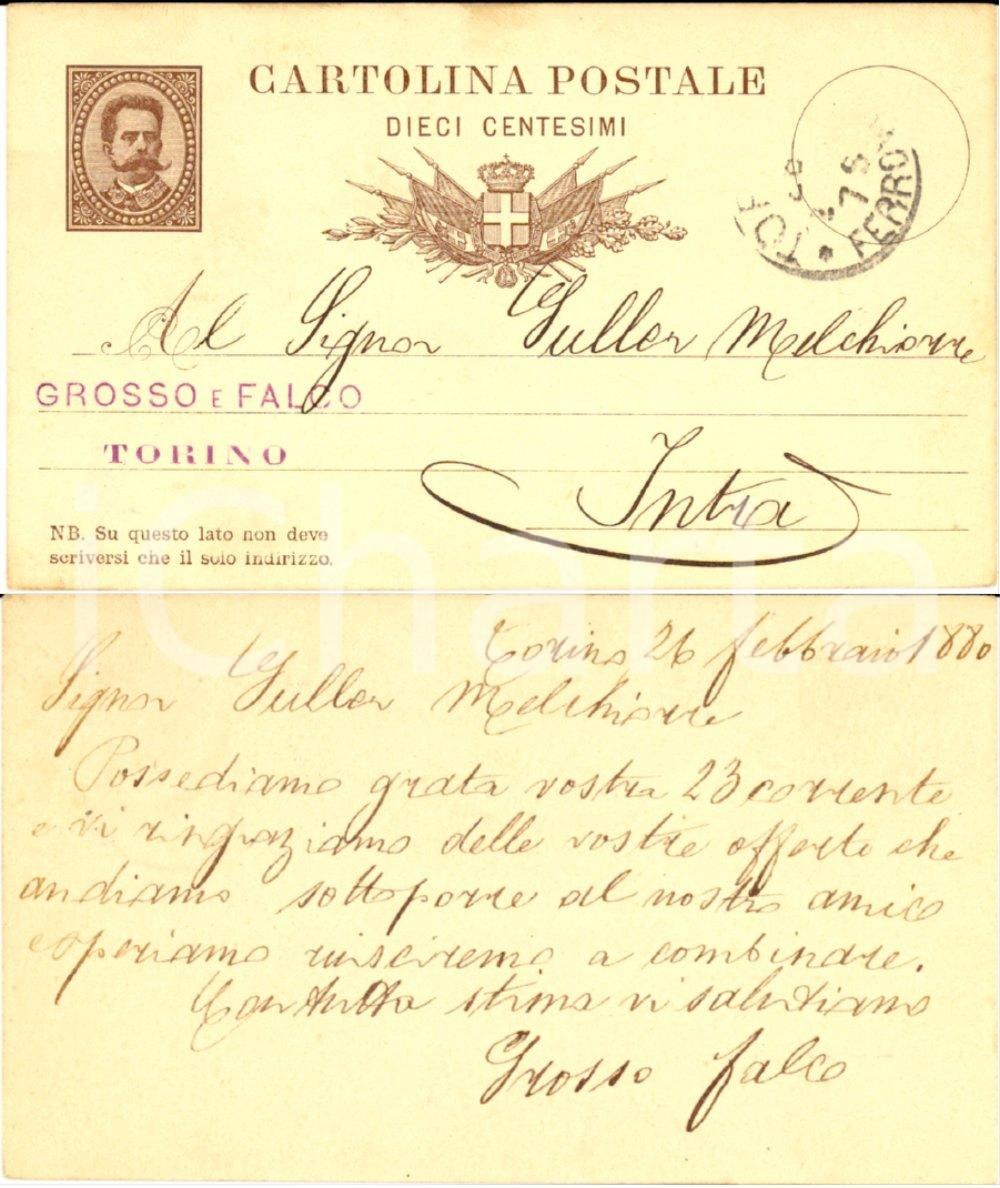 CARTOLINA POSTALE
DIECI CENTESIMI
TOR
7 S
FERRO
Al Signor Suller Melchiorre
GROSSO E FALCO
TORINO
Intra
NB. Su questo lato non deve
scriversi che il solo indirizzo.
iCharta
Torino 26 febbraio 1880
Signor Suller Melchiorre
Possediamo grata vostra 23 corrente
e vi ringraziamo delle vostre offerte che
andiamo sottoporre al nostro amico
e speriamo riusciremo a combinare.
Con tutta stima vi salutiamo
Grosso Falco